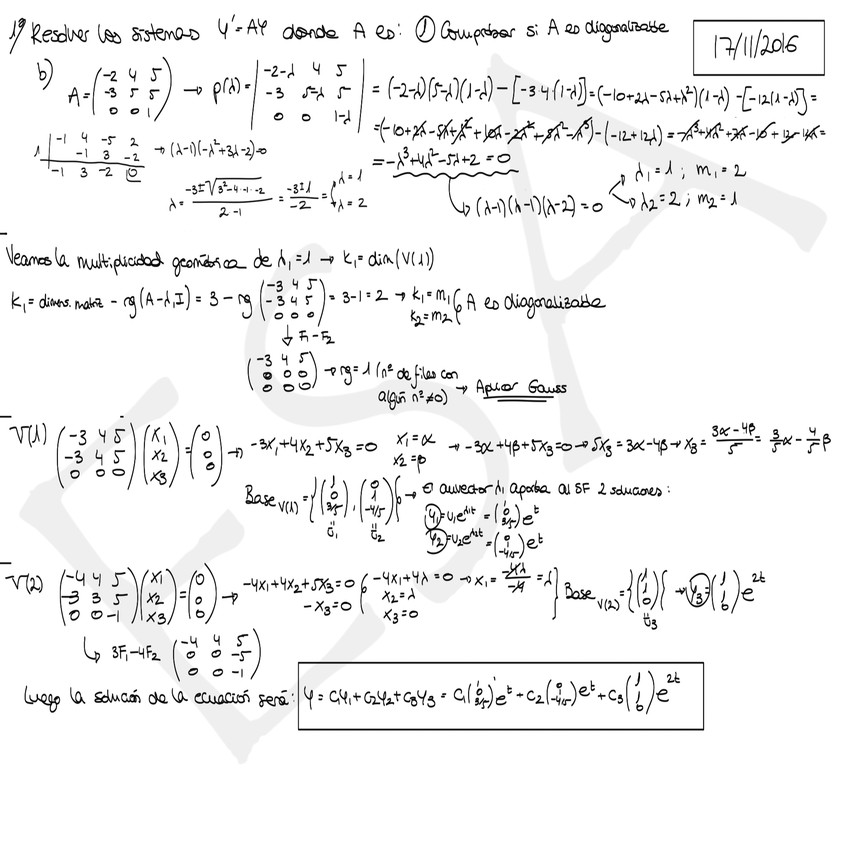 1º Resolver los sistemas Y'=AY donde A es: ① Comprobar si A es diagonalizable
17/11/2016
b) A = (-2 4 5; -3 5 5; 0 0 1) → p(λ) = |-2-λ 4 5; -3 5-λ 5; 0 0 1-λ| = (-2-λ)(5-λ)(1-λ) - [-3·4·(1-λ)] = (-10+2λ-5λ+λ²)(1-λ) - [-12(1-λ)] =
= (-10+2λ-5λ+λ²+10λ-2λ²+5λ²-λ³) - (-12+12λ) = -λ³+4λ²+7λ-10+12-12λ =
= -λ³+4λ²-5λ+2 = 0
1 | -1 4 -5 2
-1 3 -2
-1 3 -2 0
→ (λ-1)(-λ²+3λ-2)=0
λ = (-3±√(3²-4·-1·-2))/(2·-1) = (-3±1)/(-2) = λ=1 λ=2
(λ-1)(λ-1)(λ-2)=0
λ₁=1 ; m₁=2
λ₂=2 ; m₂=1
Veamos la multiplicidad geométrica de λ₁=1 → K₁ = dim(V(1))
K₁ = dimens. matriz - rg(A-λ₁I) = 3 - rg (-3 4 5; -3 4 5; 0 0 0) = 3-1 = 2 → K₁=m₁ K₂=m₂ } A es diagonalizable
↓ F₁-F₂
(-3 4 5; 0 0 0; 0 0 0) → rg=1 (nº de filas con
algún nº≠0) → Aplicar Gauss
V(1) (-3 4 5; -3 4 5; 0 0 0)(x₁; x₂; x₃) = (0; 0; 0) → -3x₁+4x₂+5x₃=0 x₁=α x₂=β → -3α+4β+5x₃=0 → 5x₃=3α-4β → x₃ = (3α-4β)/5 = 3/5 α - 4/5 β
Base V(1) = {(1; 0; 3/5), (0; 1; -4/5)} → autovector λ₁ aporta al SF 2 soluciones:
ū₁ ū₂
Y₁ = u₁e^λ₁t = (1; 0; 3/5) e^t
Y₂ = u₂e^λ₂t = (0; 1; -4/5) e^t
V(2) (-4 4 5; -3 3 5; 0 0 -1)(x₁; x₂; x₃) = (0; 0; 0) → -4x₁+4x₂+5x₃=0 -x₃=0 { -4x₁+4λ=0 → x₁ = -4λ/-4 = λ x₂=λ x₃=0 } Base V(2) = {(1; 1; 0)} → Y₃ = (1; 1; 0) e^2t
ū₃
3F₁-4F₂ (-4 4 5; 0 0 -5; 0 0 -1)
Luego la solución de la ecuación será: Y = C₁Y₁+C₂Y₂+C₃Y₃ = C₁(1; 0; 3/5)e^t + C₂(0; 1; -4/5)e^t + C₃(1; 1; 0)e^2t
ESA